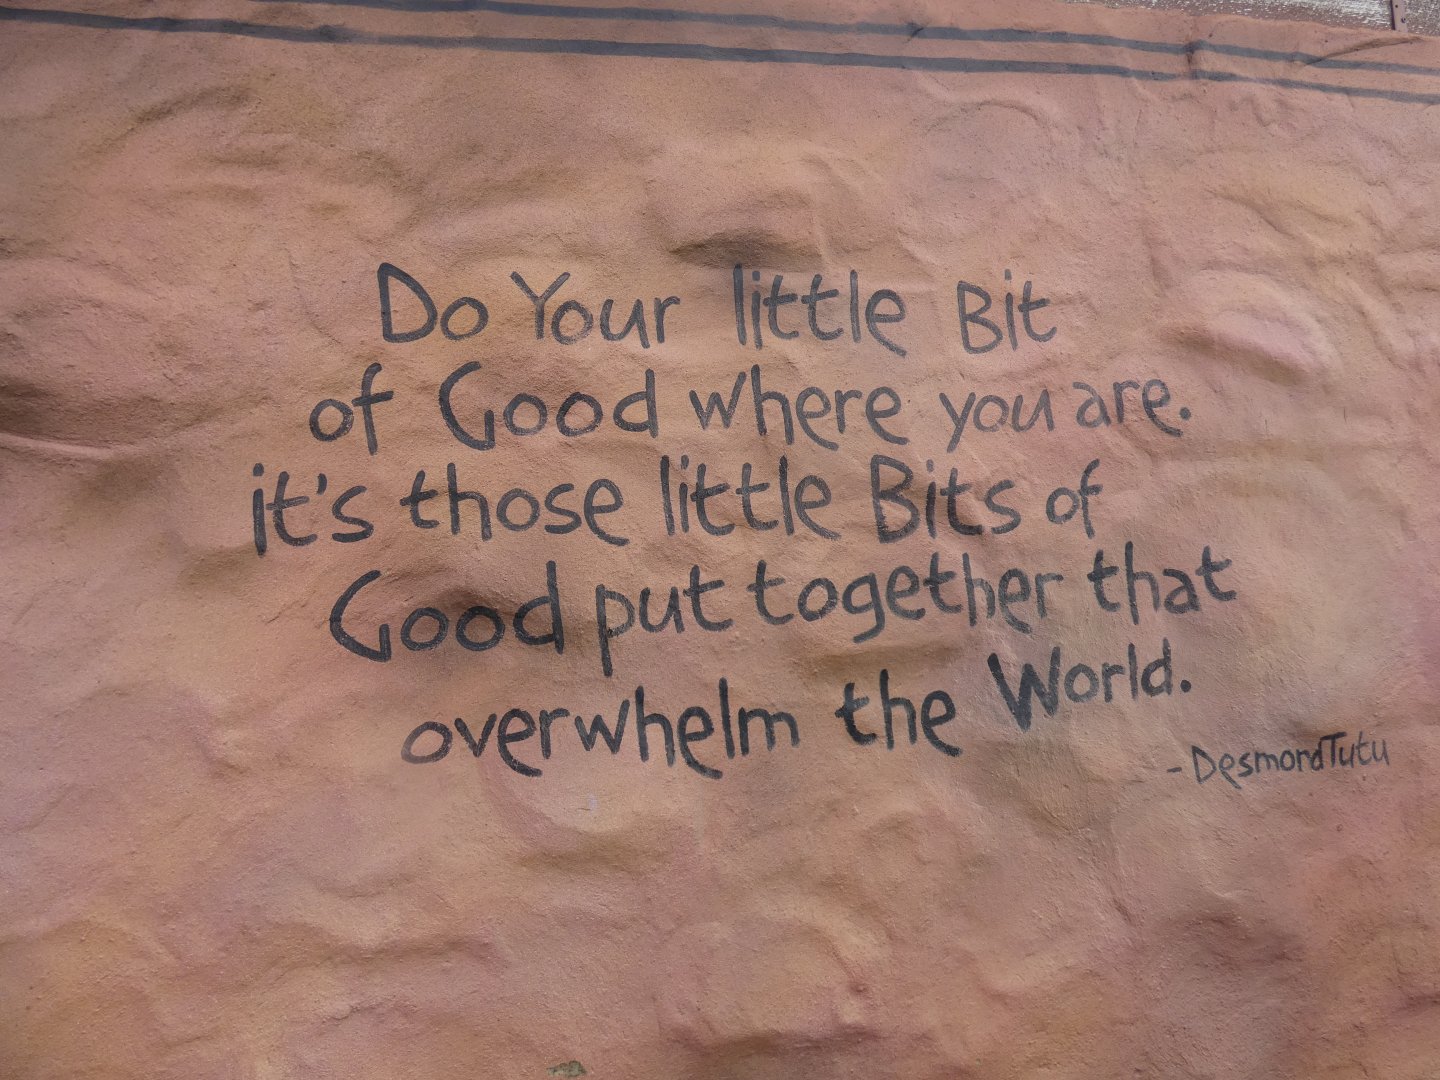 Do Your little Bit
of Good where you are.
it's those little Bits of
Good put together that
overwhelm the World.
- Desmond Tutu